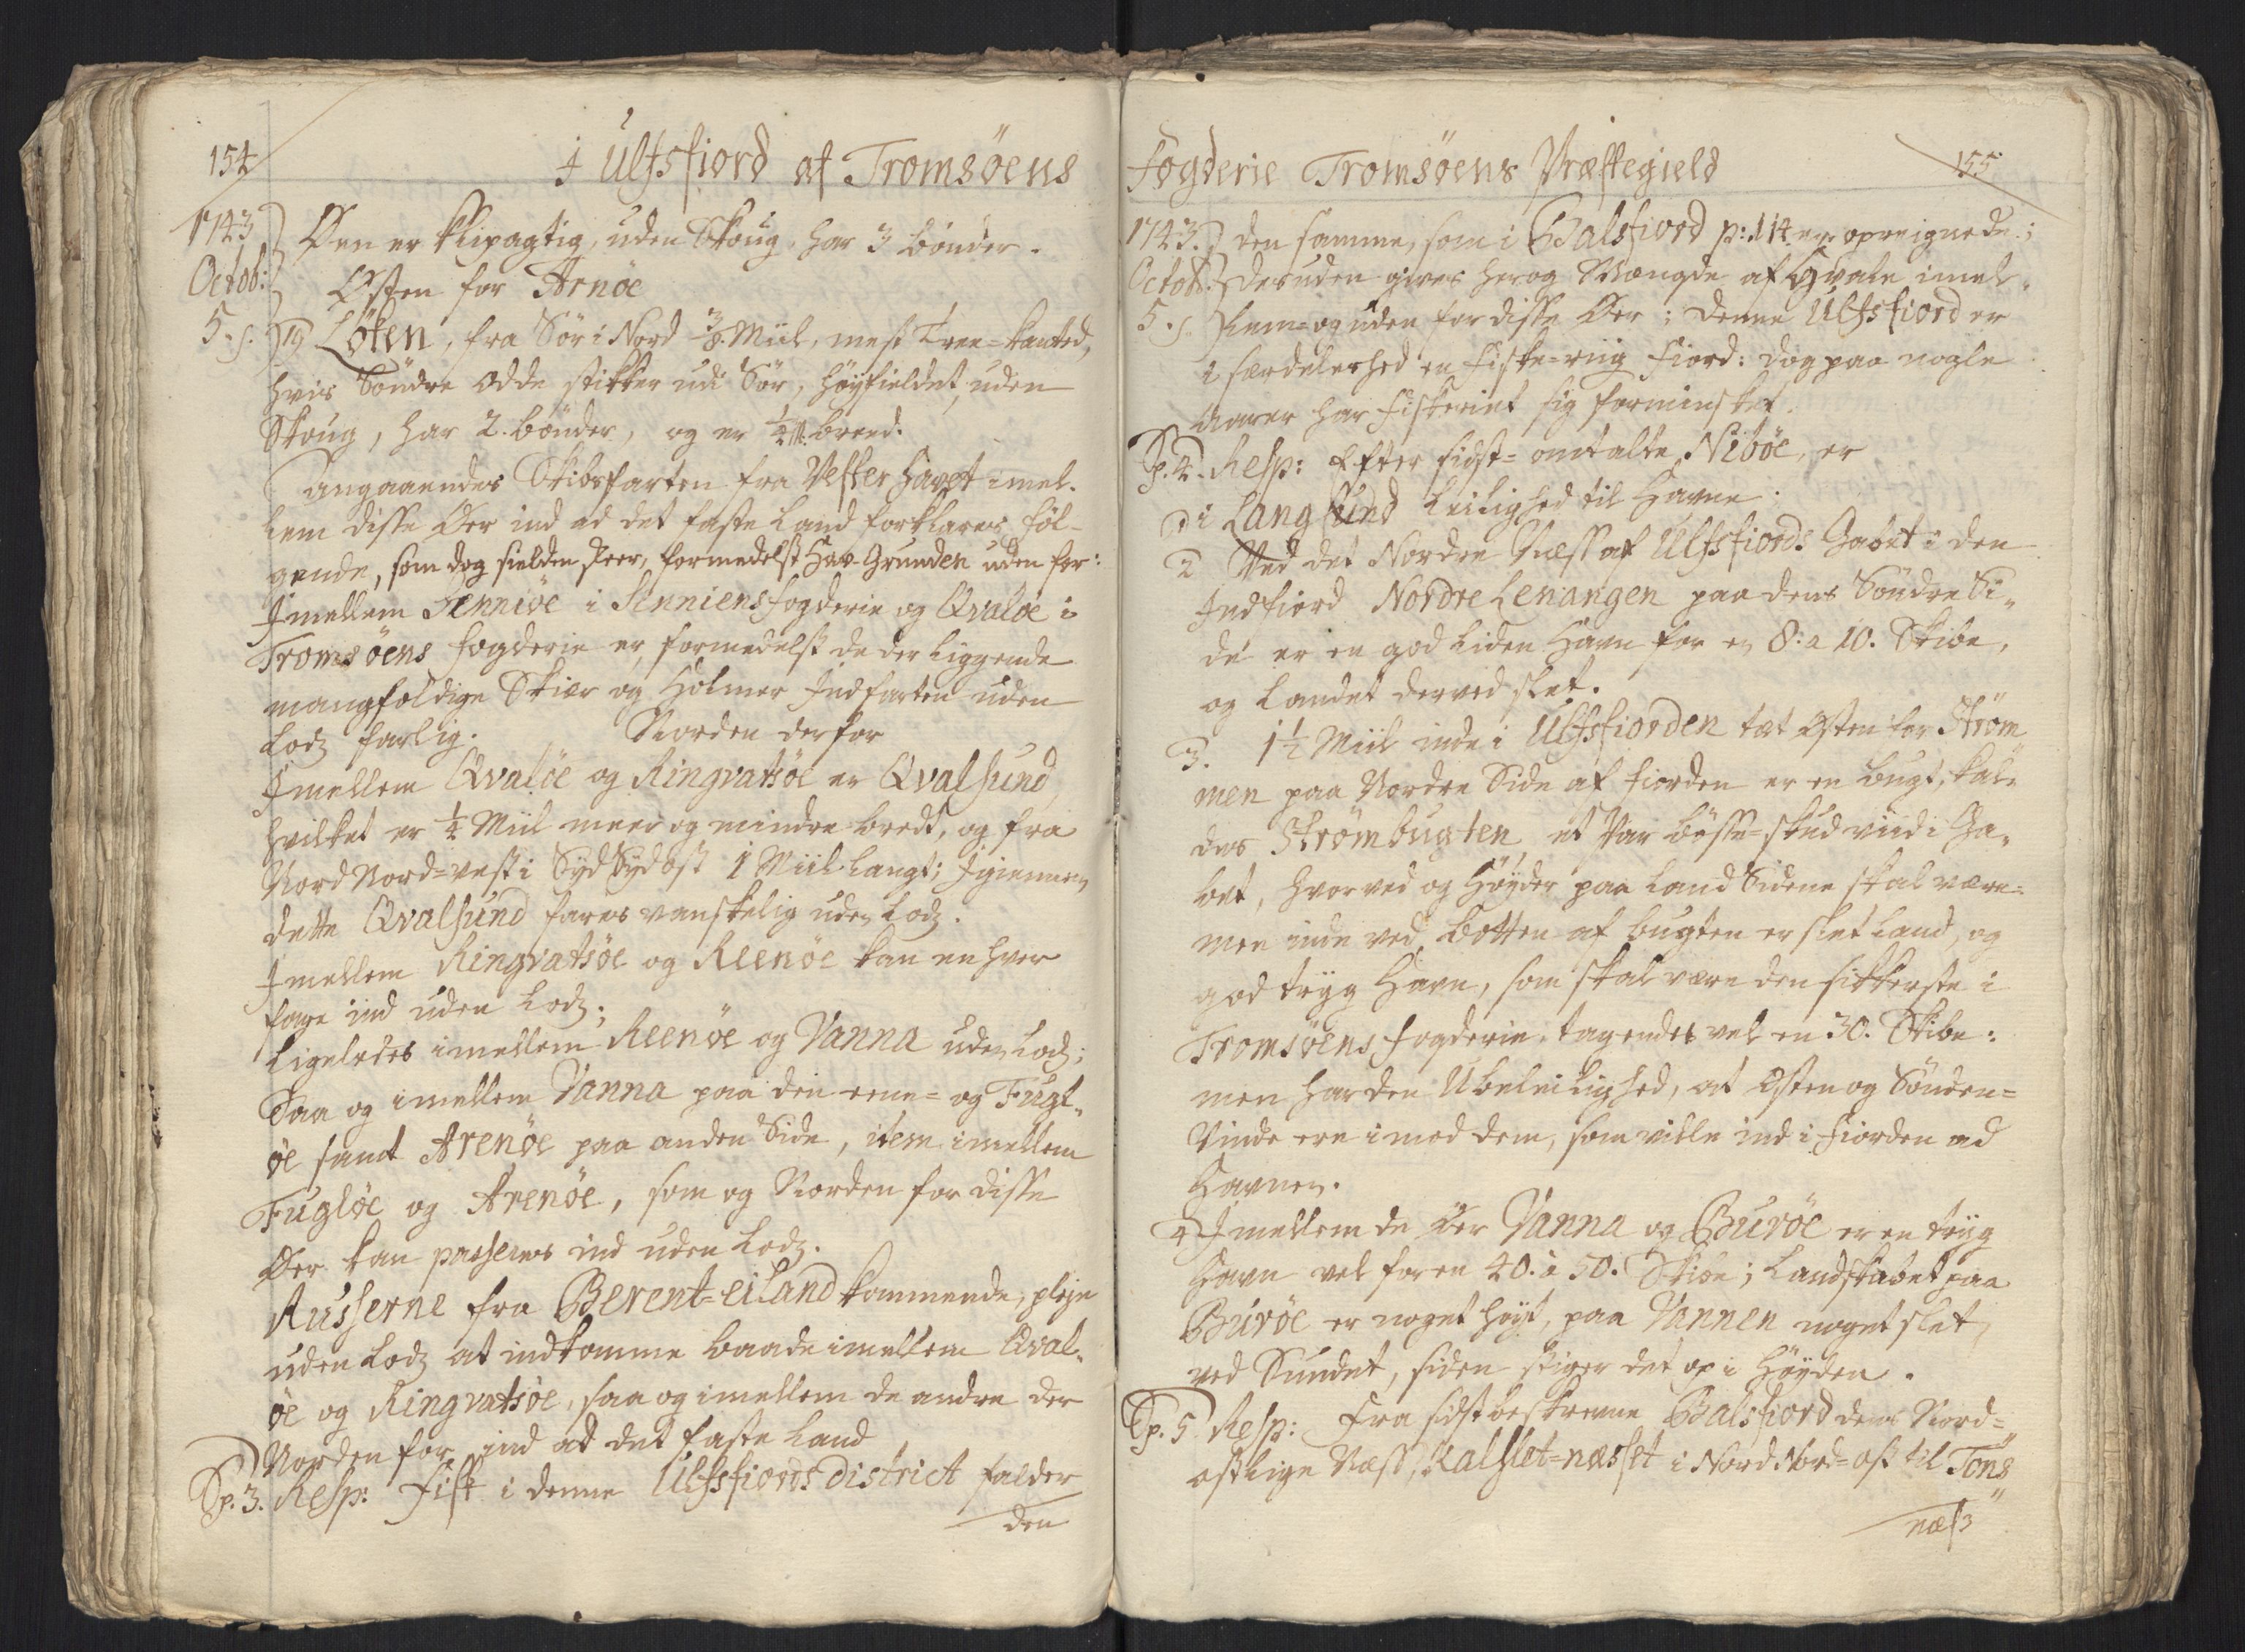 154
I Ulfsfiord af Tromsöens
1743
Octob:
5. s.
Øen er klipagtig, uden Skoug, har 3 bönder.
Østen for Arnöe
19 Löken, fra Sör i Nord 3/8. Miil, mest Tree-kanted,
hvis Söndre Odde stikker udi Sör, höyfieldet, uden
Skoug, har 2. bönder, og er 1/4 M. breed.
Angaaendes Skibsfarten fra Vester Havet imel-
lem disse Øer ind ad det faste Land forklares föl-
gende, som dog sielden skeer, formedelst Hav-Grunden uden for:
Imellem Senniöe i Senniens fogderie og Qvalöe i
Tromsöens fogderie er, formedelst de der liggende
mangfoldige Skiær og Holmer Indfarten uden
Lods farlig. Norden derfor
Imellem Qvalöe og Ringvatsöe er Qvalsund,
hvilket er 1/4 Miil meer og mindre bredt, og fra
Nord Nord-vest i Syd Syd ost 1 Miil langt; Igiennem
dette Qvalsund fares vanskelig uden Lods.
Imellem Ringvatsöe og Reenöe kan en hver
fare ind uden Lods;
Ligeledes imellem Reenöe og Vanna uden Lods;
Saa og imellem Vanna paa den eene- og Fugl-
öe samt Arenöe paa anden Side, item imellem
Fuglöe og Arenöe, som og Norden for disse
Øer kan passeres ind uden Lods.
Russerne fra Berent-eiland kommende, pleje
uden Lods at indkomme baade imellem Qval-
öe og Ringvatsöe, saa og imellem de andre der
Norden for, ind ad det faste Land
Sp. 3. Resp: Fisk i denne Ulfsfiords District falder
den
Fogderie Tromsöens Præstegield
155
1743.
Octob:
5. s.
den samme, som i Balsfiord p: 114 er opreignede;
Desuden gives her og Mængde af Hvale imel-
lem- og uden for disse Øer; Denne Ulfsfiord er
i særdeleshed en Fiske-riig Fiord: dog paa nogle
Aarer har Fiskeriet sig formindsket.
Sp. 4. Resp: Efter sidst-omtalte Niböe, er
1 i Langsund Leilighed til Havne.
2 Ved det Nordre Næss af Ulfsfiords Gabet i den
Indfiord Nordre Lenangen paa dens Söndre Si-
de er en god liden Havn for en 8. a 10. Skibe,
og Landet derved slet.
3. 1 1/2 Miil inde i Ulfsfiorden tæt Østen for Ström
men paa Nordre Side af Fiorden er en bugt, kal-
des Strömbugten et Par bösse-skud viid i Ga-
bet, hvorved og Höyder paa Land Siderne skal være
men inde ved Botten af bugten er slet Land, og
god tryg Havn, som skal være den sikkerste i
Tromsöens fogderie, tagendes vel en 30. Skibe:
men har den Ubeleilighed, at Østen og Sönden-
Vinde ere imod dem, som ville ind i Fiorden ad
Havnen.
4 Imellem de Øer Vanna og Buröe er en tryg
Havn vel for en 40. à 50. Skibe; Landskabet paa
Buröe er noget höyt, paa Vannen noget slet,
ved Sundet, siden stiger det op i Höyden.
Sp. 5. Resp: Fra sidst beskrevne Balsfiord dens Nord-
ostlige Næss, Kalslet-næsset i Nord Nord-ost til Töns
næss